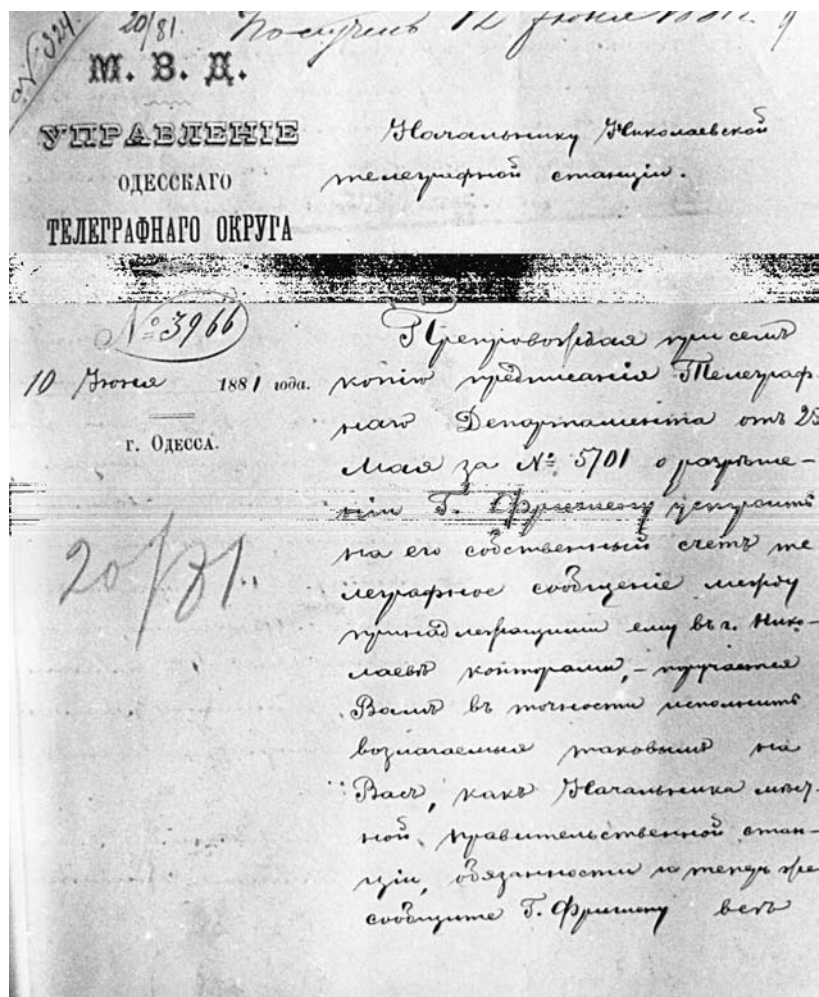 № 324
20/81. Поступило 12 Июня 1881 г.
М. В. Д.
УПРАВЛЕНІЕ
ОДЕССКАГО
ТЕЛЕГРАФНАГО ОКРУГА
Начальнику Николаевской
телеграфной станціи.
№ 3966
10 Июня 1881 года.
г. Одесса.
20/81.
Препровождая при семъ
копію предписанія Телеграф-
наго Департамента отъ 25
Мая за № 5701 о разрѣше-
ніи Г. Фришену устроить
на его собственный счетъ те
леграфное сообщеніе между
принадлежащими ему въ г. Нико-
лаевѣ конторами, – поручается
Вамъ въ точности исполнить
возлагаемыя таковымъ на
Васъ, какъ Начальника мѣст-
ной правительственной стан-
ціи, обязанности и теперь же
сообщите Г. Фришену весь